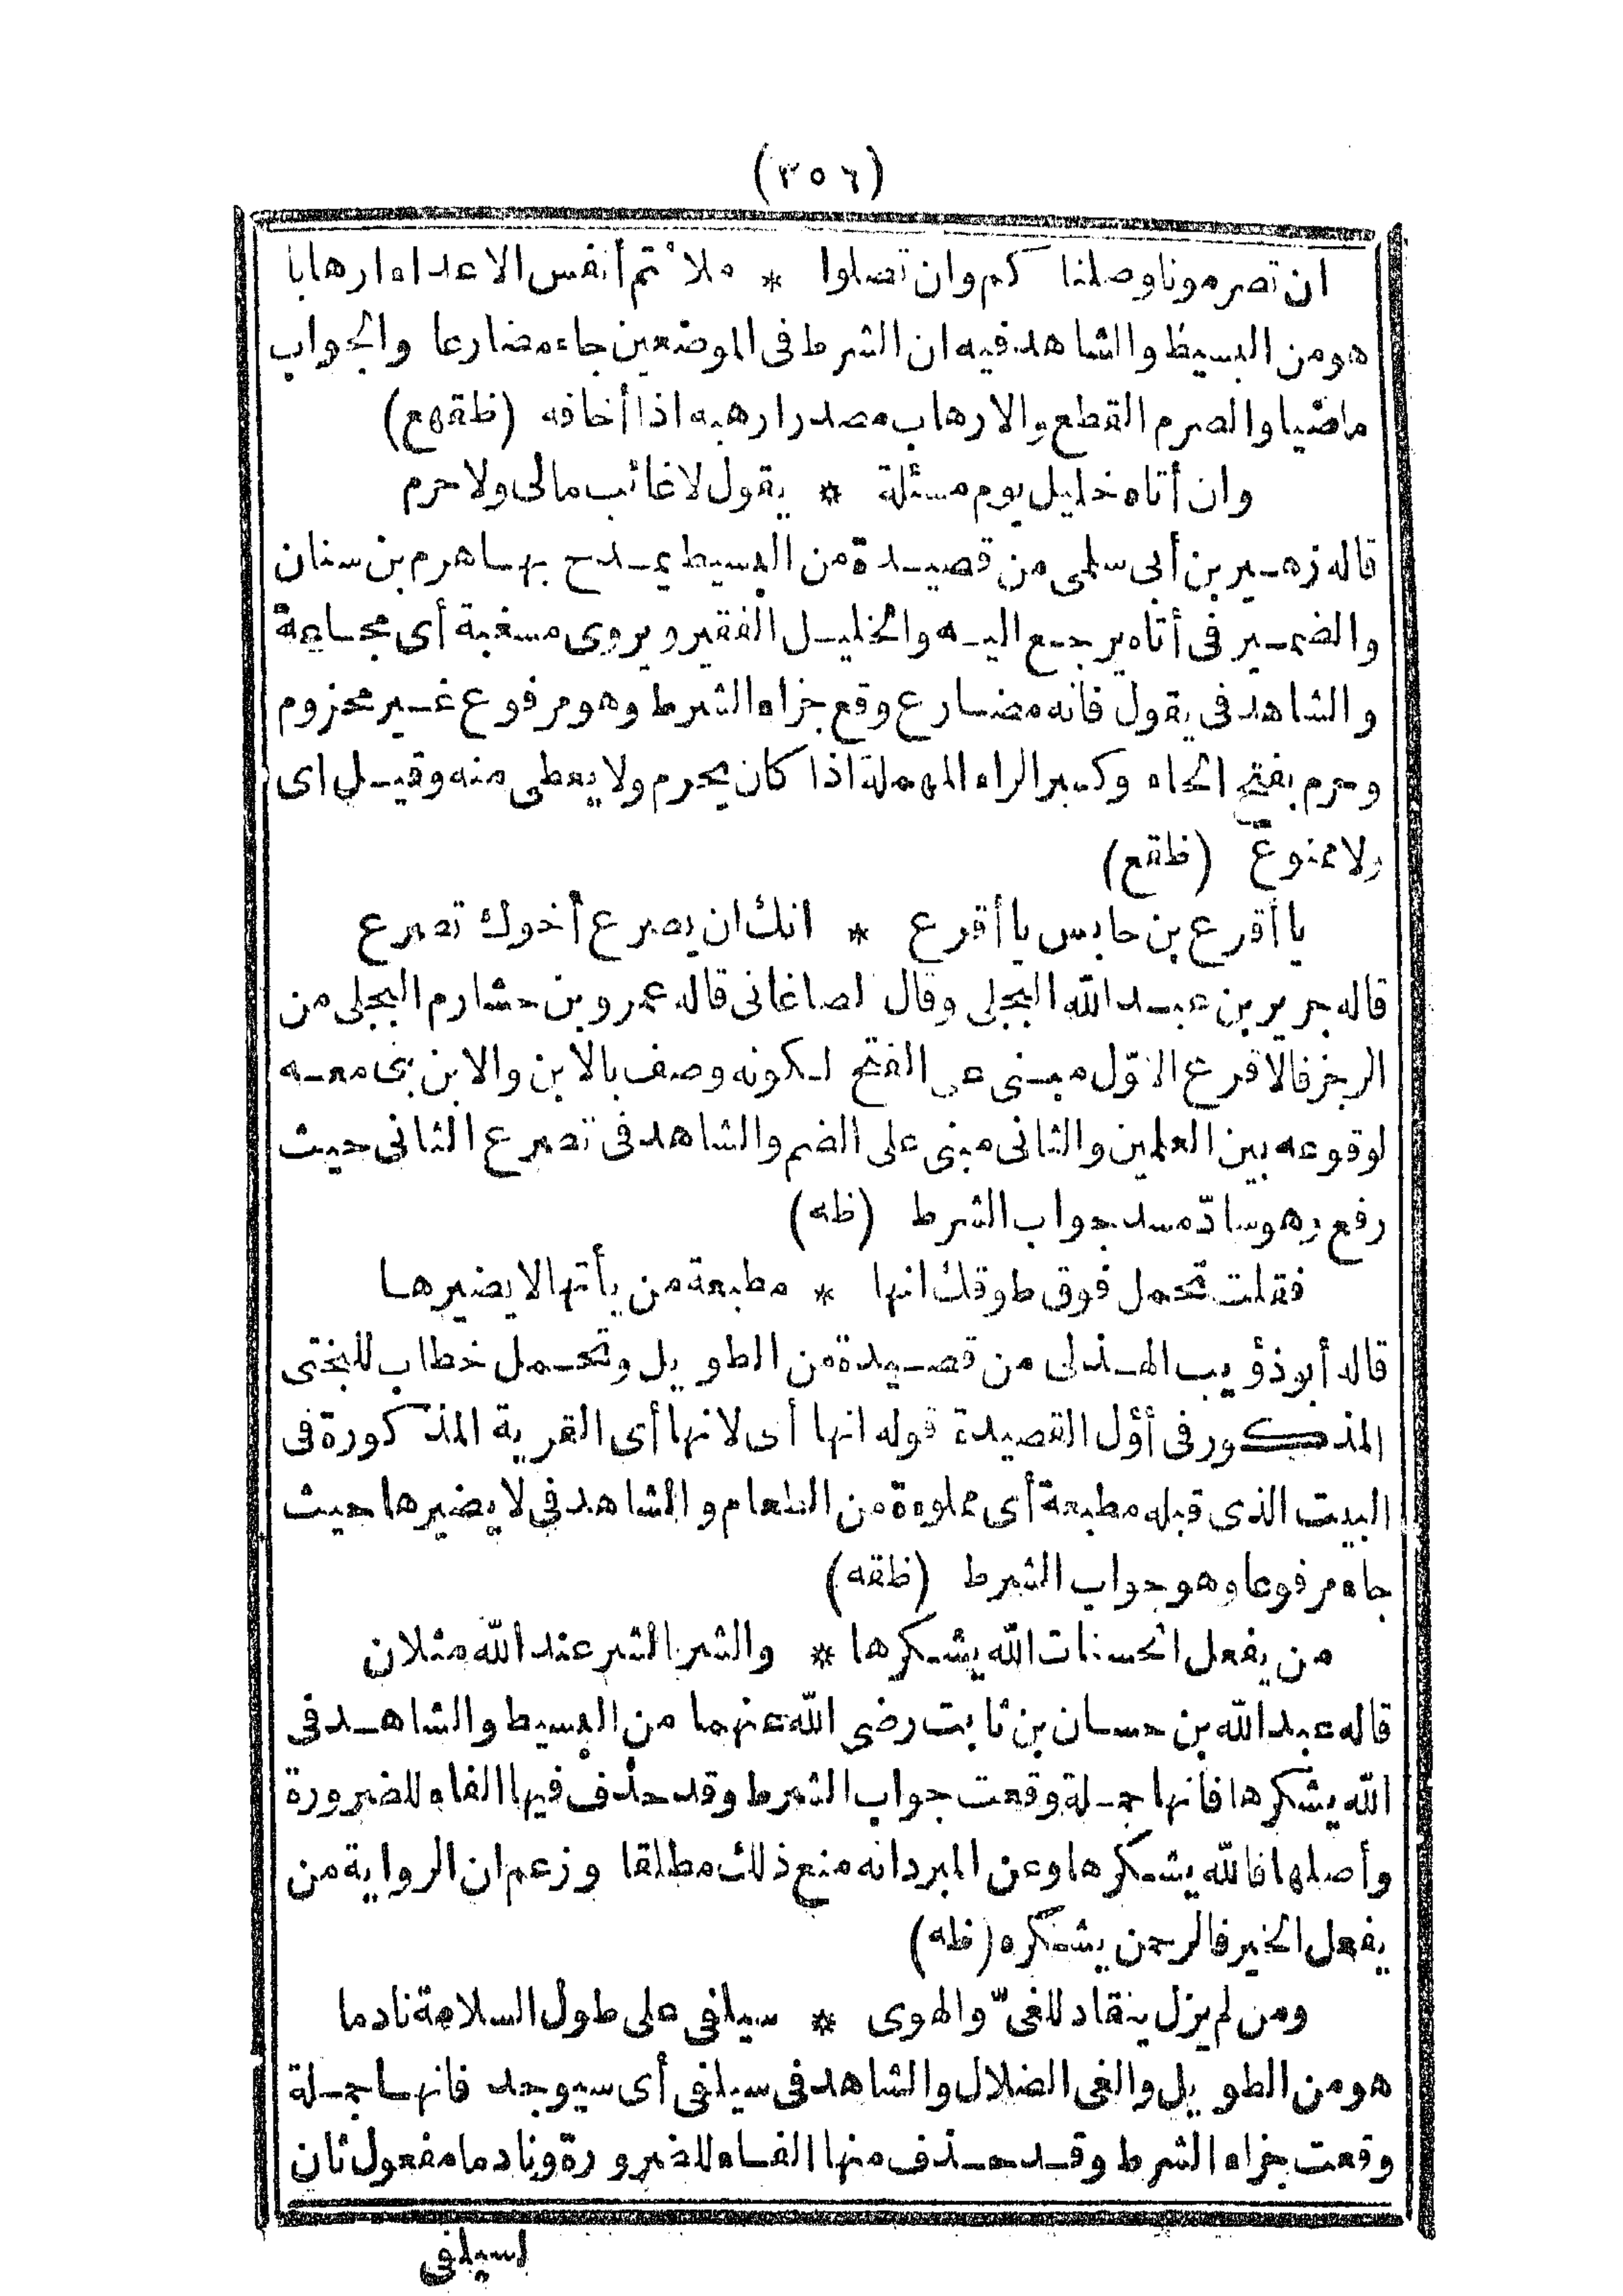 (٣٥٦)
ان تصرمونا وصلنا كم وان تصلوا * ملأتم أنفس الاعداء ارهابا
هو من البسيط والشاهد فيه ان الشرط فى الموضعين جاء مضارعا والجواب
ماضيا والصرم القطع والارهاب مصدر ارهبه اذا أخافه (ظقهع)
وان أتاه خليل يوم مسئلة * يقول لا غائب مالى ولا حرم
قاله زهير بن أبى سلمى من قصيدة من البسيط يمدح بها هرم بن سنان
والضمير فى أتاه يرجع اليه والخليل الفقير ويروى مسغبة أى مجاعة
والشاهد فى يقول فانه مضارع وقع جزاء الشرط وهو مرفوع غير مجزوم
وحرم بفتح الحاء وكسر الراء المهملة اذا كان يحرم ولا يعطى منه وقيل اى
ولا ممنوع (ظقع)
يا أقرع بن حابس يا أقرع * انك ان يصرع أخوك تصرع
قاله جرير بن عبد الله البجلى وقال لصاغانى قاله عمرو بن حشارم البجلى من
الرجز فالاقرع الاول مبنى على الفتح لكونه وصف بالابن والابن بنى معه
لوقوعه بين العلمين والثانى مبنى على الضم والشاهد فى تصرع الثانى حيث
رفع وهو سادّ مسد جواب الشرط (ظه)
فقلت تحمل فوق طوقك انها * مطبعة من يأتها لا يضيرها
قاله أبو ذؤيب الهذلى من قصيدة من الطويل وتحمل خطاب للبختى
المذكور فى أوّل القصيدة قوله انها أى لانها أى القرية المذكورة فى
البيت الذى قبله مطبعة أى مملوءة من الطعام والشاهد فى لا يضيرها حيث
جاء مرفوعا وهو جواب الشرط (ظقه)
من يفعل الحسنات الله يشكرها * والشر بالشر عند الله مثلان
قاله عبد الله بن حسان بن ثابت رضى الله عنهما من البسيط والشاهد فى
الله يشكرها فانها جملة وقعت جواب الشرط وقد حذف فيها الفاء للضرورة
وأصلها فالله يشكرها وعن المبرد انه منع ذلك مطلقا وزعم ان الرواية من
يفعل الخير فالرحمن يشكره (ظه)
ومن لم يزل ينقاد للغىّ والهوى * سيلفى على طول السلامة نادما
هو من الطويل والغى الضلال والشاهد فى سيلفى أى سيوجد فانها جملة
وقعت جزاء الشرط وقد حذف منها الفاء للضرورة ونادما مفعول ثان
لسيلفى